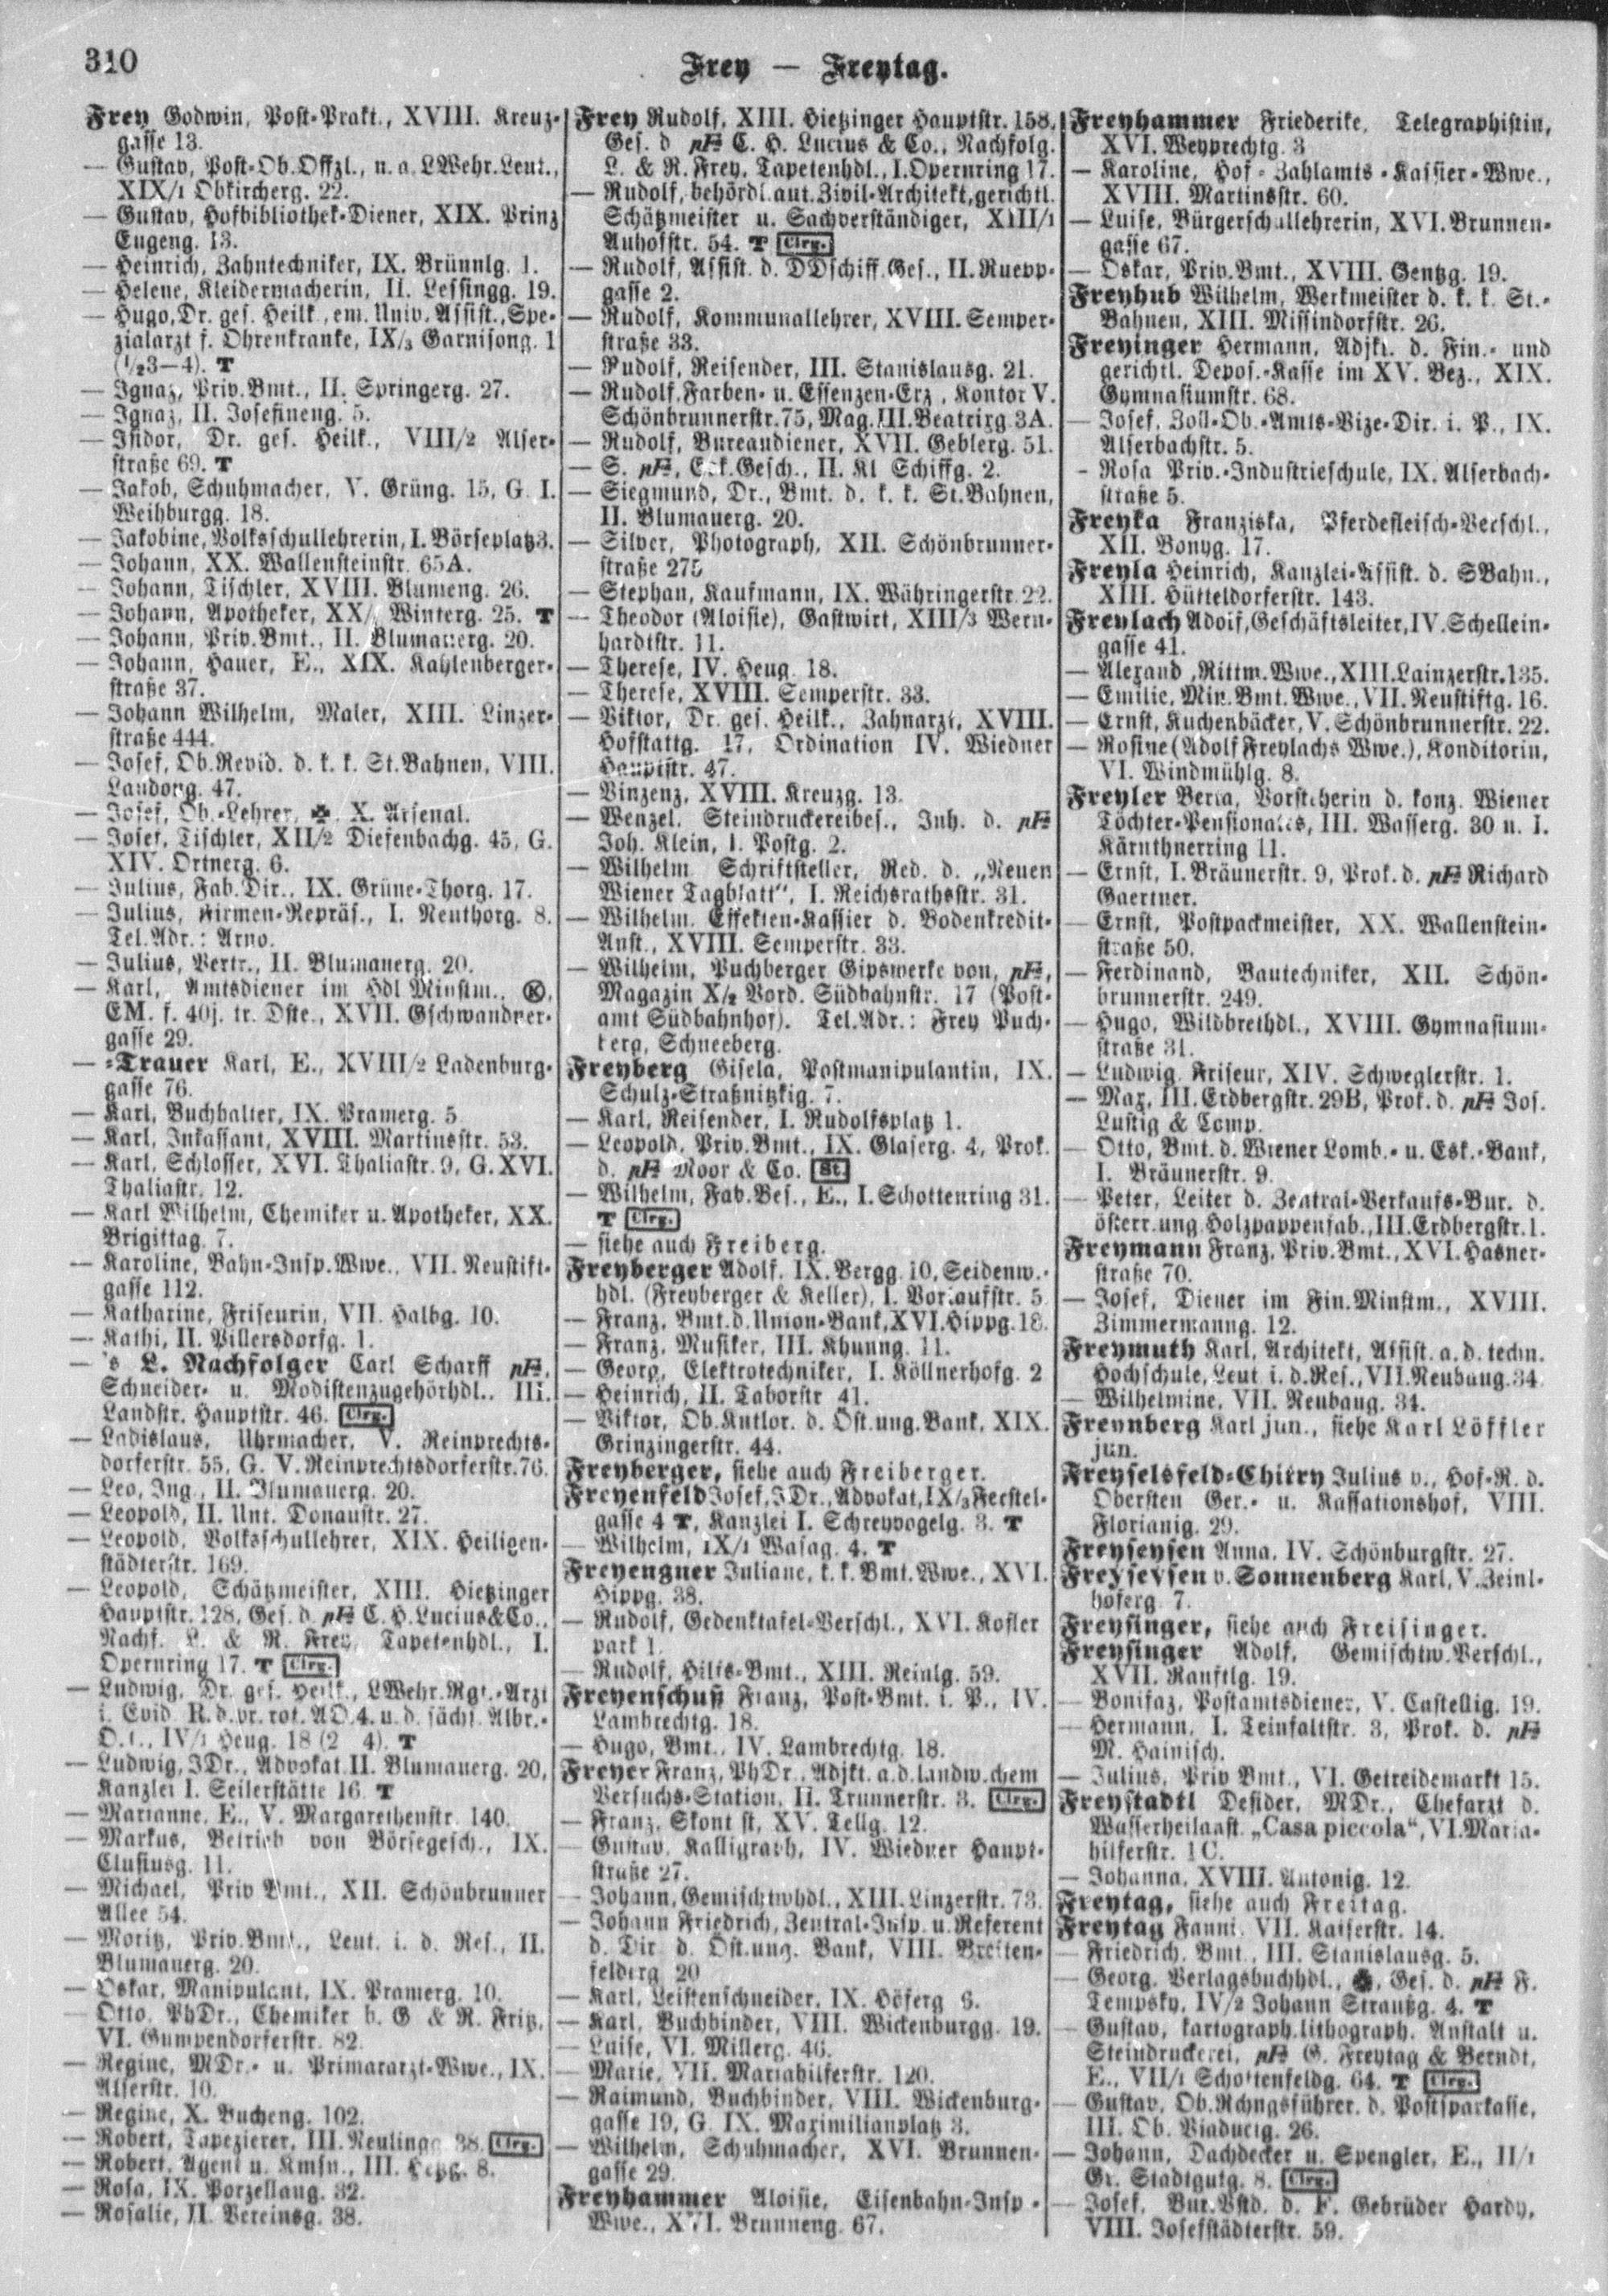 310
Frey — Freytag.
Frey Godwin, Post-Prakt., XVIII. Kreuz-
gasse 13.
— Gustav, Post-Ob.Offzl., n. a. LWehr.Leut.,
XIX/1 Obkircherg. 22.
— Gustav, Hofbibliothek-Diener, XIX. Prinz
Eugeng. 13.
— Heinrich, Zahntechniker, IX. Brünnlg. 1.
— Helene, Kleidermacherin, II. Lessingg. 19.
— Hugo, Dr. ges. Heilk., em. Univ. Assist., Spe-
zialarzt f. Ohrenkranke, IX/3 Garnisong. 1
(1/23—4). T
— Ignaz, Priv.Bmt., II. Springerg. 27.
— Ignaz, II. Josefineng. 5.
— Isidor, Dr. ges. Heilk., VIII/2 Alser-
straße 69. T
— Jakob, Schuhmacher, V. Grüng. 15, G. I.
Weihburgg. 18.
— Jakobine, Volksschullehrerin, I. Börseplatz 3.
— Johann, XX. Wallensteinstr. 65A.
— Johann, Tischler, XVIII. Blumeng. 26.
— Johann, Apotheker, XX/ Winterg. 25. T
— Johann, Priv.Bmt., II. Blumauerg. 20.
— Johann, Hauer, E., XIX. Kahlenberger-
straße 37.
— Johann Wilhelm, Maler, XIII. Linzer-
straße 444.
— Josef, Ob.Revid. d. k. k. St.Bahnen, VIII.
Laudong. 47.
— Josef, Ob.-Lehrer, ✠, X. Arsenal.
— Josef, Tischler, XII/2 Diefenbachg. 45, G.
XIV. Ortnerg. 6.
— Julius, Fab.Dir., IX. Grüne-Thorg. 17.
— Julius, Firmen-Repräs., I. Neuthorg. 8.
Tel.Adr.: Arno.
— Julius, Vertr., II. Blumauerg. 20.
— Karl, Amtsdiener im Hdl Minstm., Ⓚ,
EM. f. 40j. tr. Dste., XVII. Gschwandner-
gasse 29.
— -Trauer Karl, E., XVIII/2 Ladenburg-
gasse 76.
— Karl, Buchhalter, IX. Pramerg. 5.
— Karl, Inkassant, XVIII. Martinsstr. 53.
— Karl, Schlosser, XVI. Thaliastr. 9, G. XVI.
Thaliastr. 12.
— Karl Wilhelm, Chemiker u. Apotheker, XX.
Brigittag. 7.
— Karoline, Bahn-Insp.Wwe., VII. Neustift-
gasse 112.
— Katharine, Friseurin, VII. Halbg. 10.
— Kathi, II. Pillersdorfg. 1.
— 's L. Nachfolger Carl Scharff pF,
Schneider- u. Modistenzugehörhdl., III.
Landstr. Hauptstr. 46. Clrg.
— Ladislaus, Uhrmacher, V. Reinprechts-
dorferstr. 55, G. V. Reinprechtsdorferstr. 76.
— Leo, Ing., II. Blumauerg. 20.
— Leopold, II. Unt. Donaustr. 27.
— Leopold, Volksschullehrer, XIX. Heiligen-
städterstr. 169.
— Leopold, Schätzmeister, XIII. Hietzinger
Hauptstr. 128, Ges. d. pF C. H. Lucius & Co.,
Nachf. L. & R. Frey, Tapetenhdl., I.
Opernring 17. T Clrg.
— Ludwig, Dr. ges. Heilk., LWehr.Rgt.-Arzt
i. Evid R. d. pr. rot. AO.4. u. d. sächs. Albr.-
IV/1 Heug. 18 (2 4). T
— Ludwig, JDr., Advokat II. Blumauerg. 20,
Kanzlei I. Seilerstätte 16. T
— Marianne, E., V. Margarethenstr. 140.
— Markus, Betrieb von Börsegesch., IX.
Clusiusg. 11.
— Michael, Priv Bmt., XII. Schönbrunner
Allee 54.
— Moritz, Priv.Bmt., Leut. i. d. Res., II.
Blumauerg. 20.
— Oskar, Manipulant, IX. Pramerg. 10.
— Otto, PhDr., Chemiker b. G & R. Fritz,
VI. Gumpendorferstr. 82.
— Regine, MDr.- u. Primararzt-Wwe., IX.
Alserstr. 10.
— Regine, X. Bucheng. 102.
— Robert, Tapezierer, III. Neulingg 38. Clrg.
— Robert, Agent u. Kmsn., III. 8.
— Rosa, IX. Porzellang. 32.
— Rosalie, II. Vereinsg. 38.
Frey Rudolf, XIII. Hietzinger Hauptstr. 158,
Ges. d pF C. H. Lucius & Co., Nachfolg.
L. & R. Frey, Tapetenhdl., I. Opernring 17.
— Rudolf, behördl. aut. Zivil-Architekt, gerichtl.
Schätzmeister u. Sachverständiger, XIII/1
Auhofstr. 54. T Clrg.
— Rudolf, Assist. d. DDschiff.Ges., II. Ruepp-
gasse 2.
— Rudolf, Kommunallehrer, XVIII. Semper-
straße 33.
— Rudolf, Reisender, III. Stanislausg. 21.
— Rudolf, Farben- u. Essenzen-Erz, Kontor V.
Schönbrunnerstr. 75, Mag. III. Beatrixg. 3A.
— Rudolf, Bureaudiener, XVII. Geblerg. 51.
— S. pF, Esk.Gesch., II. Kl Schiffg. 2.
— Siegmund, Dr., Bmt. d. k. k. St.Bahnen,
II. Blumauerg. 20.
— Silver, Photograph, XII. Schönbrunner-
straße 275
— Stephan, Kaufmann, IX. Währingerstr. 22.
— Theodor (Aloisie), Gastwirt, XIII/3 Wern-
hardtstr. 11.
— Therese, IV. Heug. 18.
— Therese, XVIII. Semperstr. 33.
— Viktor, Dr. ges. Heilk., Zahnarzt, XVIII.
Hofstattg. 17, Ordination IV. Wiedner
Hauptstr. 47.
— Vinzenz, XVIII. Kreuzg. 13.
— Wenzel, Steindruckereibes., Inh. d. pF
Joh. Klein, I. Postg. 2.
— Wilhelm Schriftsteller, Red. d. „Neuen
Wiener Tagblatt“, I. Reichsrathsstr. 31.
— Wilhelm, Effekten-Kassier d. Bodenkredit-
Anst., XVIII. Semperstr. 33.
— Wilhelm, Puchberger Gipswerke von, pF,
Magazin X/2 Vord. Südbahnstr. 17 (Post-
amt Südbahnhof). Tel.Adr.: Frey Puch-
berg, Schneeberg.
Freyberg Gisela, Postmanipulantin, IX.
Schulz-Straßnitzkig. 7.
— Karl, Reisender, I. Rudolfsplatz 1.
— Leopold, Priv.Bmt., IX. Glaserg. 4, Prok.
d. pF Moor & Co. St
— Wilhelm, Fab.Bes., E., I. Schottenring 31.
T Clrg.
— siehe auch Freiberg.
Freyberger Adolf, IX. Bergg. 10, Seidenw.-
hdl. (Freyberger & Keller), I. Vorlaufstr. 5
— Franz, Bmt. d. Union-Bank, XVI. Hippg. 18.
— Franz, Musiker, III. Khunng. 11.
— Georg, Elektrotechniker, I. Köllnerhofg. 2
— Heinrich, II. Taborstr 41.
— Viktor, Ob.Kntlor. d. Öst.ung.Bank, XIX.
Grinzingerstr. 44.
Freyberger, siehe auch Freiberger.
Freyenfeld Josef, JDr., Advokat, IX/3 Ferstel-
gasse 4 T, Kanzlei I. Schreyvogelg. 3. T
— Wilhelm, IX/1 Wasag. 4. T
Freyengner Juliane, k. k. Bmt.Wwe., XVI.
Hippg. 38.
— Rudolf, Gedenktafel-Verschl., XVI. Kofler
park 1.
— Rudolf, Hilfs-Bmt., XIII. Reinlg. 59.
Freyenschuß Franz, Post-Bmt. i. P., IV.
Lambrechtg. 18.
— Hugo, Bmt., IV. Lambrechtg. 18.
Freyer Franz, PhDr., Adjkt. a. d. landw. chem
Versuchs-Station, II. Trunnerstr. 3. Clrg.
— Franz, Skont st, XV. Tellg. 12.
— Gustav, Kalligraph, IV. Wiedner Haupt-
straße 27.
— Johann, Gemischtwhdl., XIII. Linzerstr. 73.
— Johann Friedrich, Zentral-Insp. u. Referent
d. Dir d. Öst.ung. Bank, VIII. Breiten-
felderg 20
— Karl, Leistenschneider, IX. Höferg 6.
— Karl, Buchbinder, VIII. Wickenburgg. 19.
— Luise, VI. Millerg. 46.
— Marie, VII. Mariahilferstr. 120.
— Raimund, Buchbinder, VIII. Wickenburg-
gasse 19, G. IX. Maximilianplatz 3.
— Wilhelm, Schuhmacher, XVI. Brunnen-
gasse 29.
Freyhammer Aloisie, Eisenbahn-Insp -
Wwe., XVI. Brunneng. 67.
Freyhammer Friederike, Telegraphistin,
XVI. Weyprechtg. 3
— Karoline, Hof-Zahlamts-Kassier-Wwe.,
XVIII. Martinsstr. 60.
— Luise, Bürgerschullehrerin, XVI. Brunnen-
gasse 67.
— Oskar, Priv.Bmt., XVIII. Gentzg. 19.
Freyhub Wilhelm, Werkmeister d. k. k. St.-
Bahnen, XIII. Missindorfstr. 26.
Freyinger Hermann, Adjkt. d. Fin.- und
gerichtl. Depos.-Kasse im XV. Bez., XIX.
Gymnasiumstr. 68.
— Josef, Zoll-Ob.-Amts-Vize-Dir. i. P., IX.
Alserbachstr. 5.
- Rosa Priv.-Industrieschule, IX. Alserbach-
straße 5.
Freyka Franziska, Pferdefleisch-Verschl.,
XII. Bonyg. 17.
Freyla Heinrich, Kanzlei-Assist. d. SBahn.,
XIII. Hütteldorferstr. 143.
Freylach Adolf, Geschäftsleiter, IV. Schellein-
gasse 41.
— Alexand, Rittm.Wwe., XIII. Lainzerstr. 135.
— Emilie, Min.Bmt.Wwe., VII. Neustiftg. 16.
— Ernst, Kuchenbäcker, V. Schönbrunnerstr. 22.
— Rosine (Adolf Freylachs Wwe.), Konditorin,
VI. Windmühlg. 8.
Freyler Berta, Vorsteherin d. konz. Wiener
Töchter-Pensionates, III. Wasserg. 30 u. I.
Kärnthnerring 11.
— Ernst, I. Bräunerstr. 9, Prok. d. pF Richard
Gaertner.
— Ernst, Postpackmeister, XX. Wallenstein-
straße 50.
— Ferdinand, Bautechniker, XII. Schön-
brunnerstr. 249.
— Hugo, Wildbrethdl., XVIII. Gymnasium-
straße 31.
— Ludwig, Friseur, XIV. Schweglerstr. 1.
— Max, III. Erdbergstr. 29B, Prok. d. pF Jos.
Lustig & Comp.
— Otto, Bmt. d. Wiener Lomb.- u. Esk.-Bank,
I. Bräunerstr. 9.
— Peter, Leiter d. Zentral-Verkaufs-Bur. d.
österr.ung.Holzpappenfab., III. Erdbergstr. 1.
Freymann Franz, Priv.Bmt., XVI. Hasner-
straße 70.
— Josef, Diener im Fin.Minstm., XVIII.
Zimmermanng. 12.
Freymuth Karl, Architekt, Assist. a. d. techn.
Hochschule, Leut i. d. Res., VII. Neubaug. 34
— Wilhelmine, VII. Neubaug. 34.
Freynberg Karl jun., siehe Karl Löffler
jun.
Freyselsfeld-Chitry Julius v., Hof-R. d.
Obersten Ger.- u. Kassationshof, VIII.
Florianig. 29.
Freyseysen Anna, IV. Schönburgstr. 27.
Freyseysen v. Sonnenberg Karl, V. Zeinl-
hoferg 7.
Freysinger, siehe auch Freisinger.
Freysinger Adolf, Gemischtw.Verschl.,
XVII. Rauftlg. 19.
— Bonifaz, Postamtsdiener, V. Castellig. 19.
— Hermann, I. Teinfaltstr. 3, Prok. d. pF
M. Hainisch.
— Julius, Priv Bmt., VI. Getreidemarkt 15.
Freystadtl Desider, MDr., Chefarzt d.
Wasserheilanst. „Casa piccola“, VI. Maria-
hilferstr. 1C.
— Johanna, XVIII. Antonig. 12.
Freytag, siehe auch Freitag.
Freytag Fanni, VII. Kaiserstr. 14.
— Friedrich, Bmt., III. Stanislausg. 5.
— Georg, Verlagsbuchhdl., Ges. d. pF F.
Tempsky, IV/2 Johann Straußg. 4. T
— Gustav, kartograph. lithograph. Anstalt u.
Steindruckerei, pF G. Freytag & Berndt,
E., VII/1 Schottenfeldg. 64. T Clrg.
— Gustav, Ob.Rchngsführer. d. Postsparkasse,
III. Ob. Viaductg. 26.
— Johann, Dachdecker u. Spengler, E., II/1
Gr. Stadtgutg. 8. Clrg.
— Josef, Bur.Vstd. d. F. Gebrüder Hardy,
VIII. Josefstädterstr. 59.